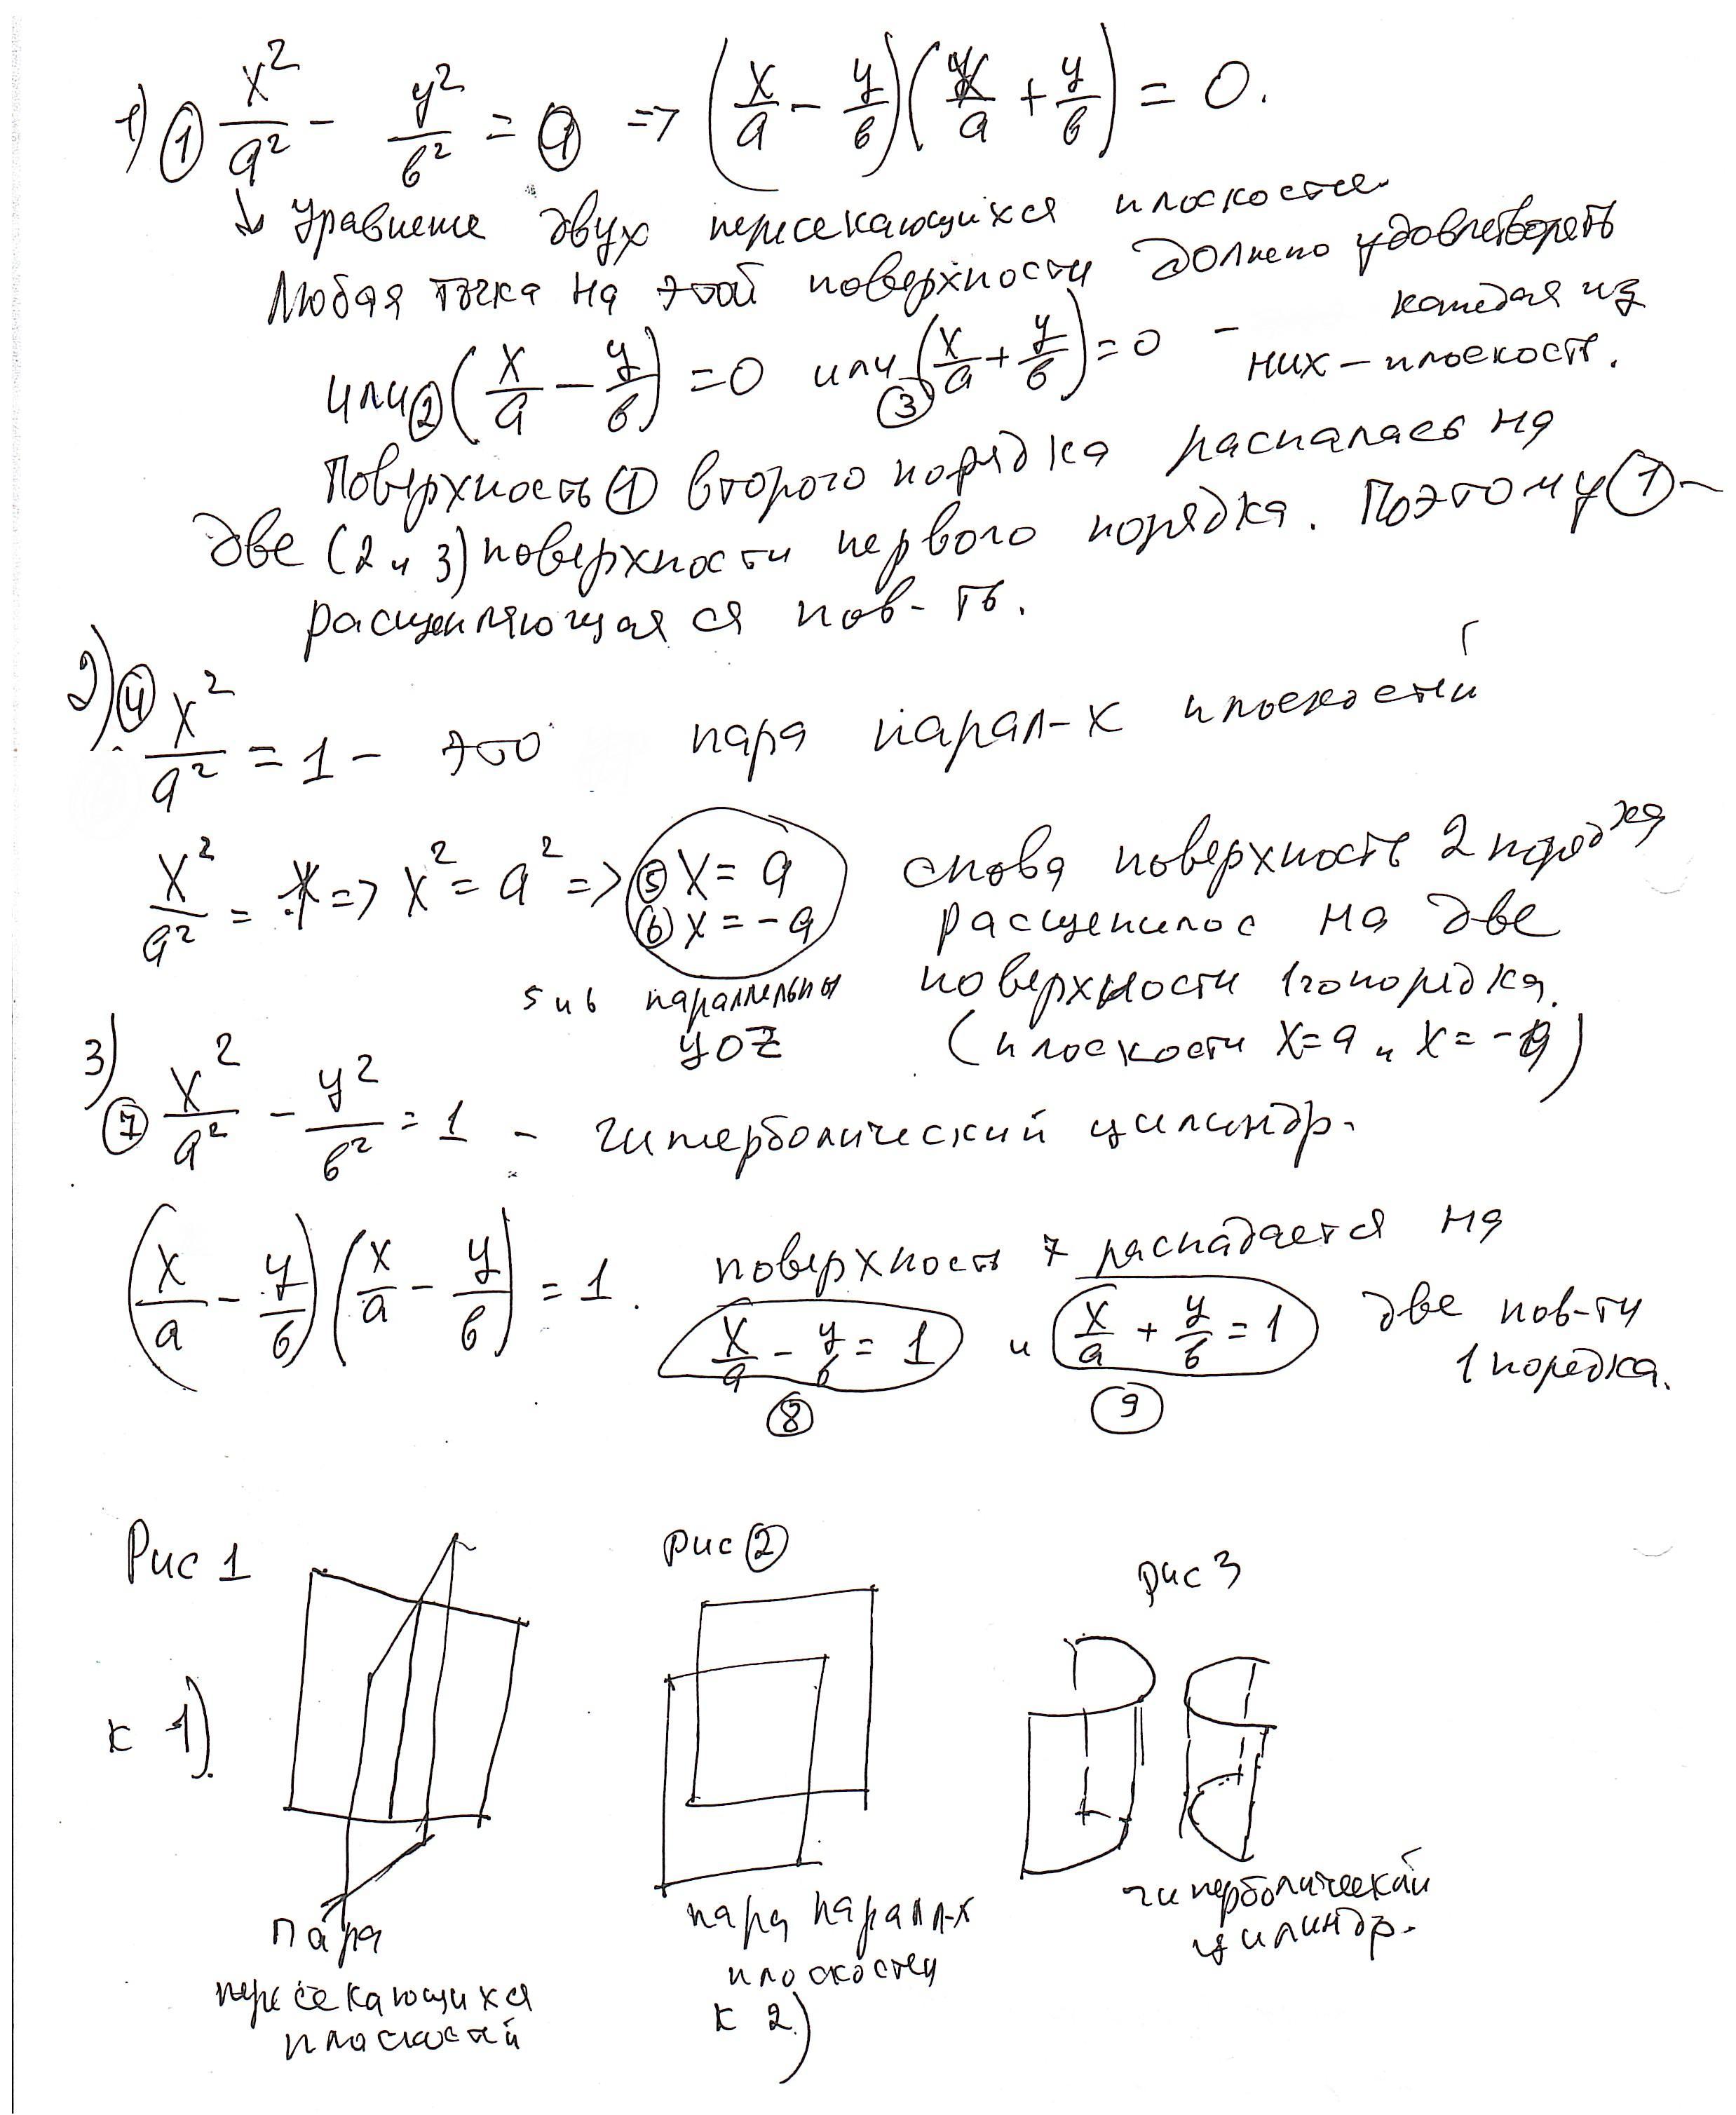 1) ① x²/a² − y²/в² = 0 => (x/a − y/в)(x/a + y/в) = 0.
↓ Уравнение двух пересекающихся плоскостей
Любая точка на этой поверхности должно удовлетворять
или ② (x/a − y/в) = 0 или ③ (x/a + y/в) = 0 – каждая из
них – плоскость.
Поверхность ① второго порядка распалась на
две (2 и 3) поверхности первого порядка. Поэтому ① –
расщепляющая ся пов-ть.
2) ④ x²/a² = 1 – это пара парал-х плоскостей
x²/a² = 1 => x² = a² => ⑤ x = a
⑥ x = −a
5 и 6 параллельны
yoz
снова поверхность 2 порядка
расщепилос на две
поверхности 1го порядка.
(плоскости x=a и x=−a)
3) ⑦ x²/a² − y²/в² = 1 – гиперболический цилиндр.
(x/a − y/в)(x/a − y/в) = 1. поверхность 7 распадается на
x/a − y/в = 1 и x/a + y/в = 1 две пов-ти
⑧ ⑨ 1 порядка.
Рис 1
к 1).
пара
пересекающихся
плоскостей
рис ②
пара паралл-х
плоскостей
к 2)
рис 3
гиперболический
цилиндр.